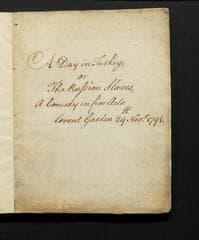 A Day in Turkey,
or
The Russian Slaves,
A Comedy in five Acts,
Covent Garden 29th Novr. 1791.